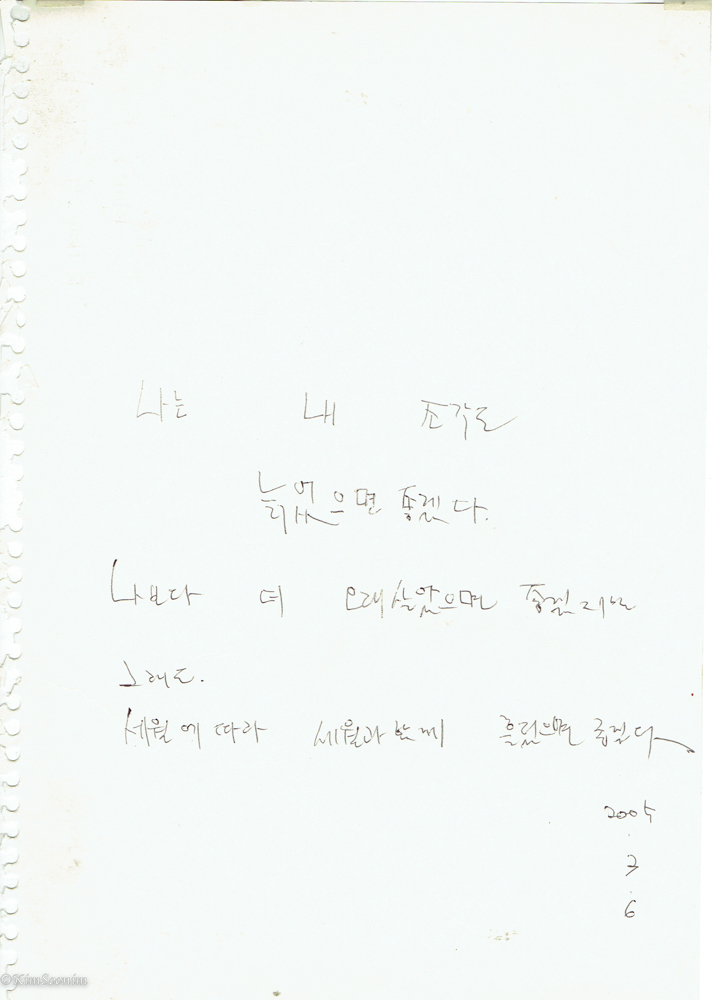 나는 내 조각도
늙었으면 좋겠다.
나보다 더 오래 살았으면 좋겠지만
그래도.
세월에 따라 세월과 함께 흘렀으면 좋겠다.
2005
.
3
.
6
©KimSeenim